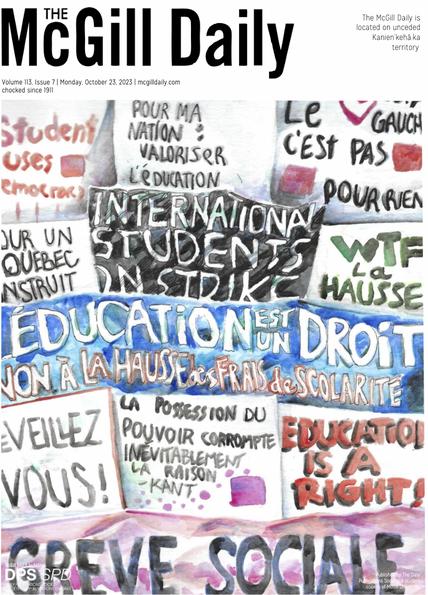 THE
McGill Daily
The McGill Daily is
located on unceded
Kanien'kehá:ka
territory.
Volume 113, Issue 7 | Monday, October 23, 2023 | mcgilldaily.com
chocked since 1911
Student
uses
emocracy
POUR MA
NATION :
VALORISER
L'ÉDUCATION
Le GAUCH
C'EST PAS
POUR RIEN
INTERNATIONAL
STUDENTS
ON STRIKE
OUR UN
QUÉBEC
NSTRUIT
WTF
La
HAUSSE
ÉDUCATION EST UN DROIT
NON À LA HAUSSE des FRAIS de SCOLARITÉ
EVEILLEZ
VOUS!
LA POSSESSION DU
POUVOIR CORROMPTE
INÉVITABLEMENT
LA RAISON
- KANT
EDUCATION
IS A
RIGHT!
GREVE SOCIALE
DPS SPD
Published by The Daily